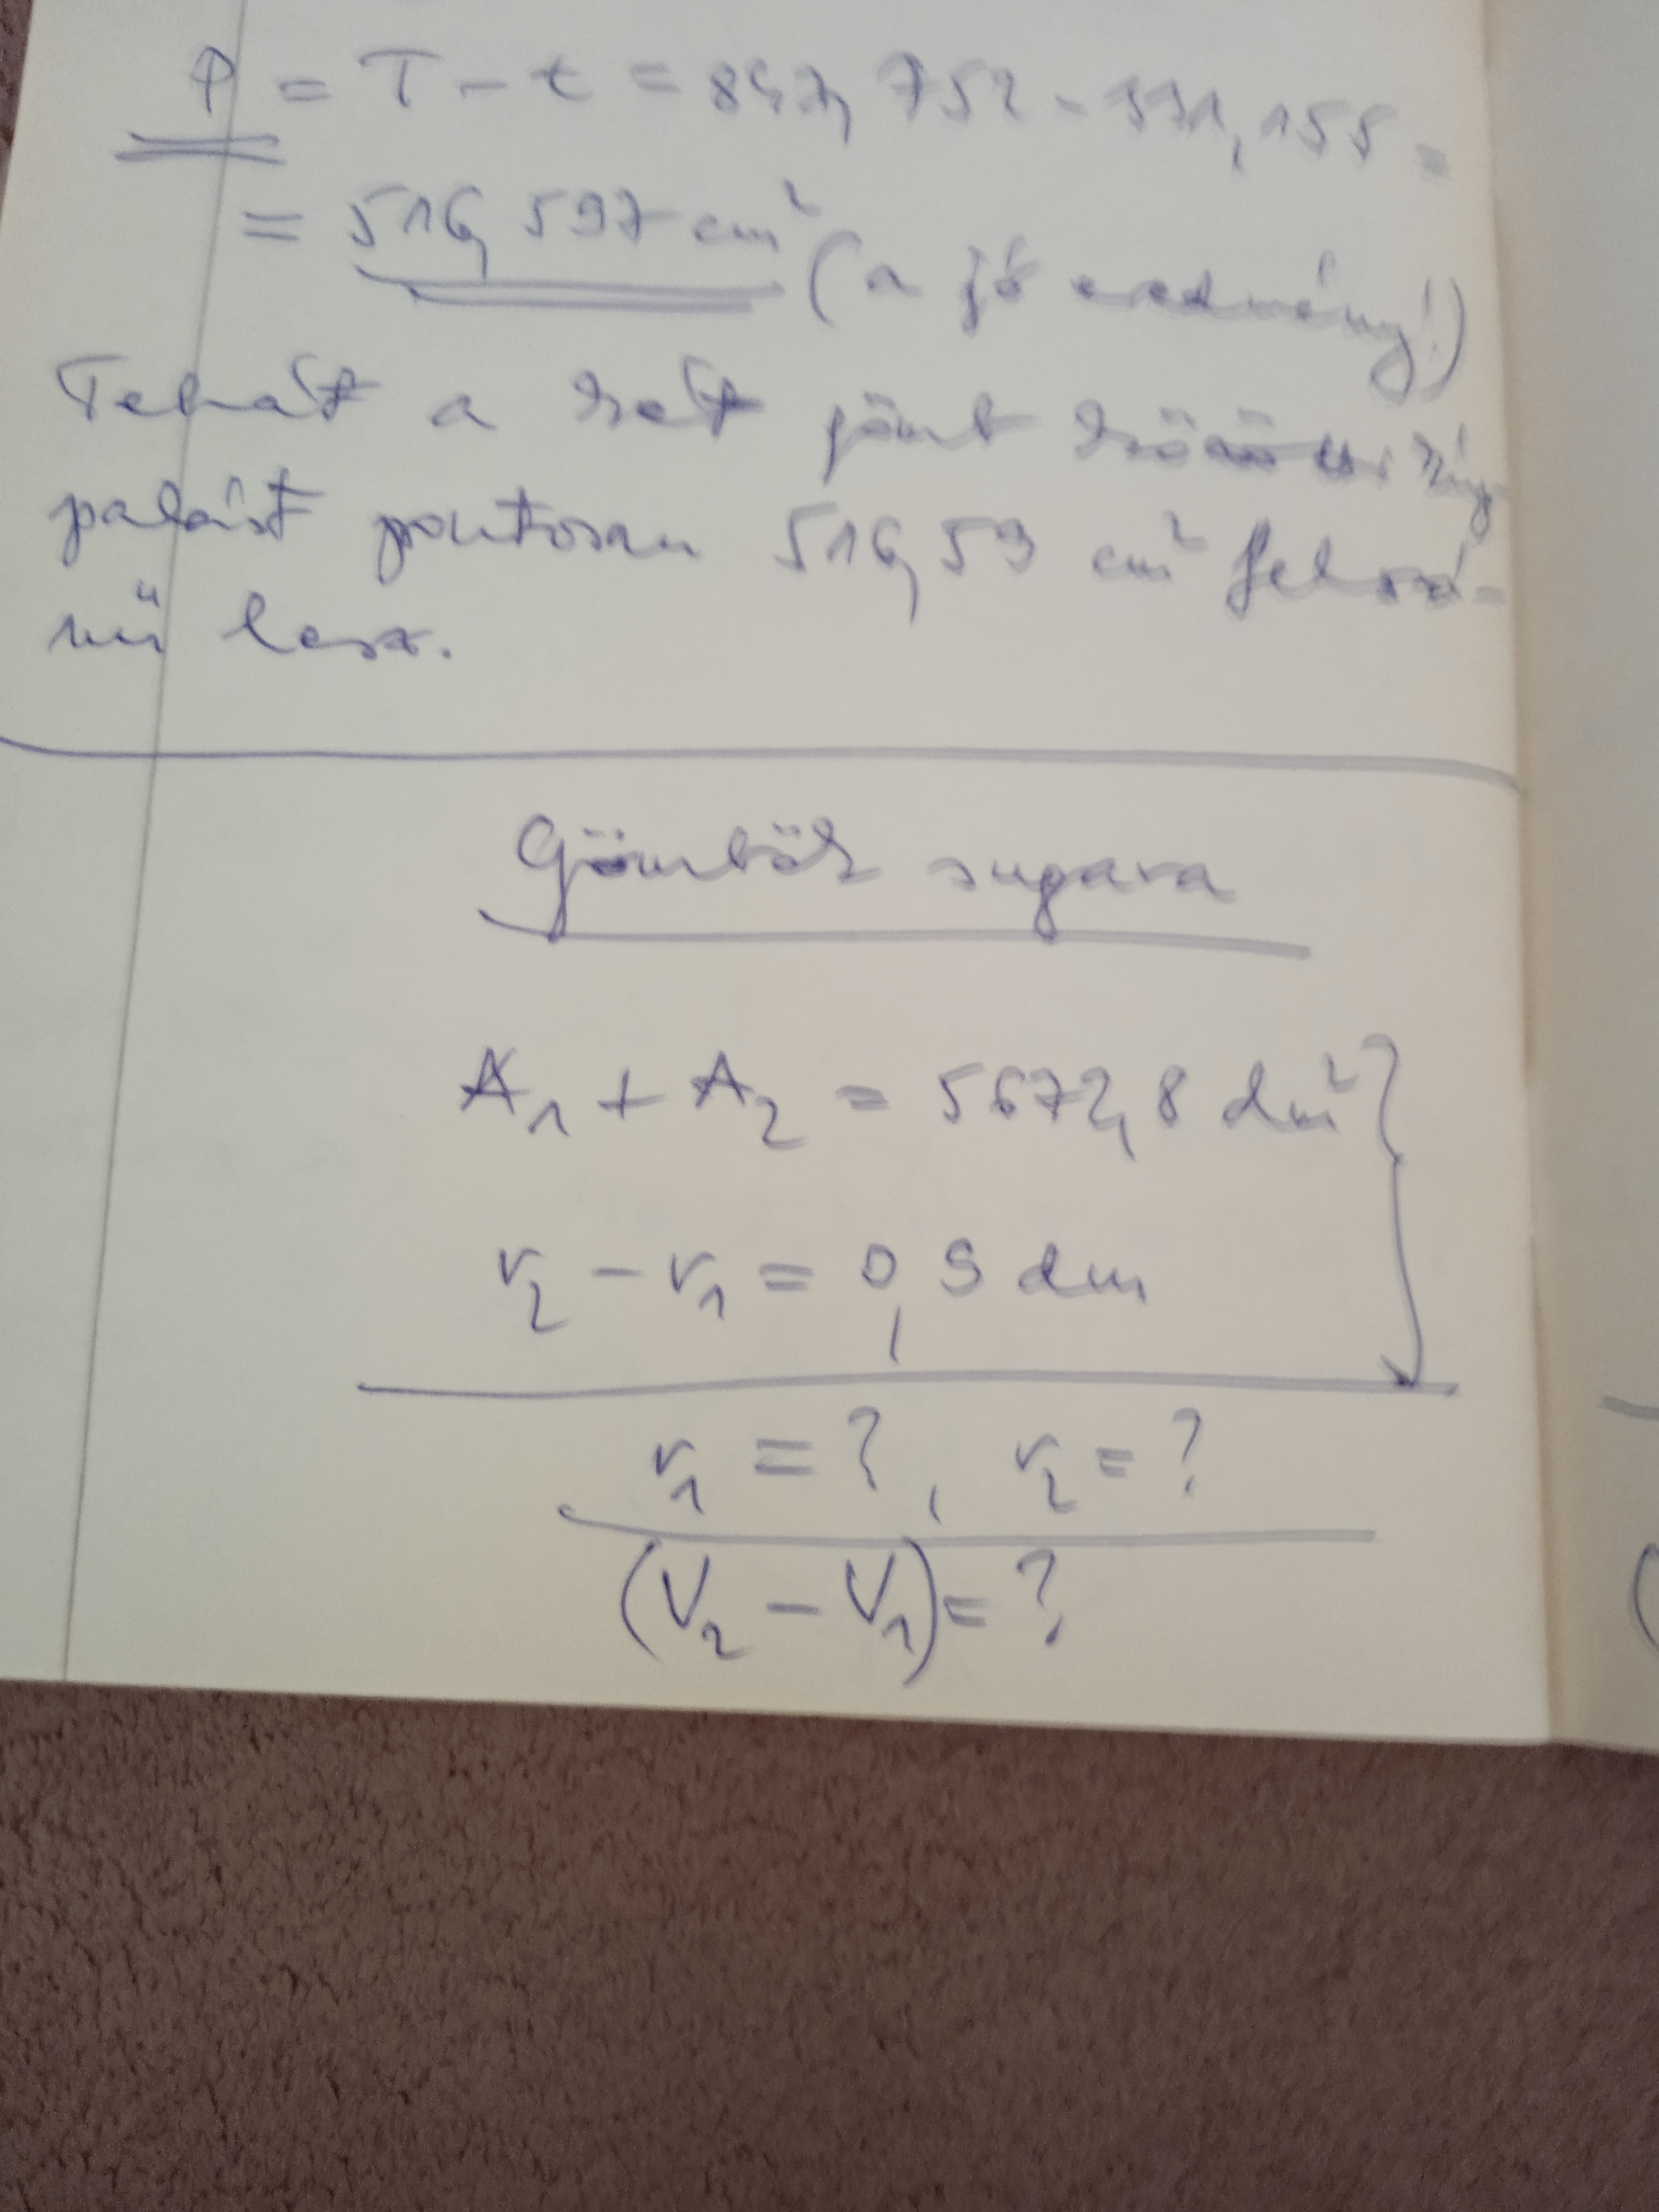 P = T - t = 847,752 - 331,155 =
= 516,597 cm² (a jó eredmény!)
Tehát a két gömb közötti líg
palást pontosan 516,59 cm² felszí-
nű lesz.
Gömbök sugara
A₁ + A₂ = 5672,8 dm²
r₂ - r₁ = 0,9 dm
r₁ = ?, r₂ = ?
(V₂ - V₁) = ?